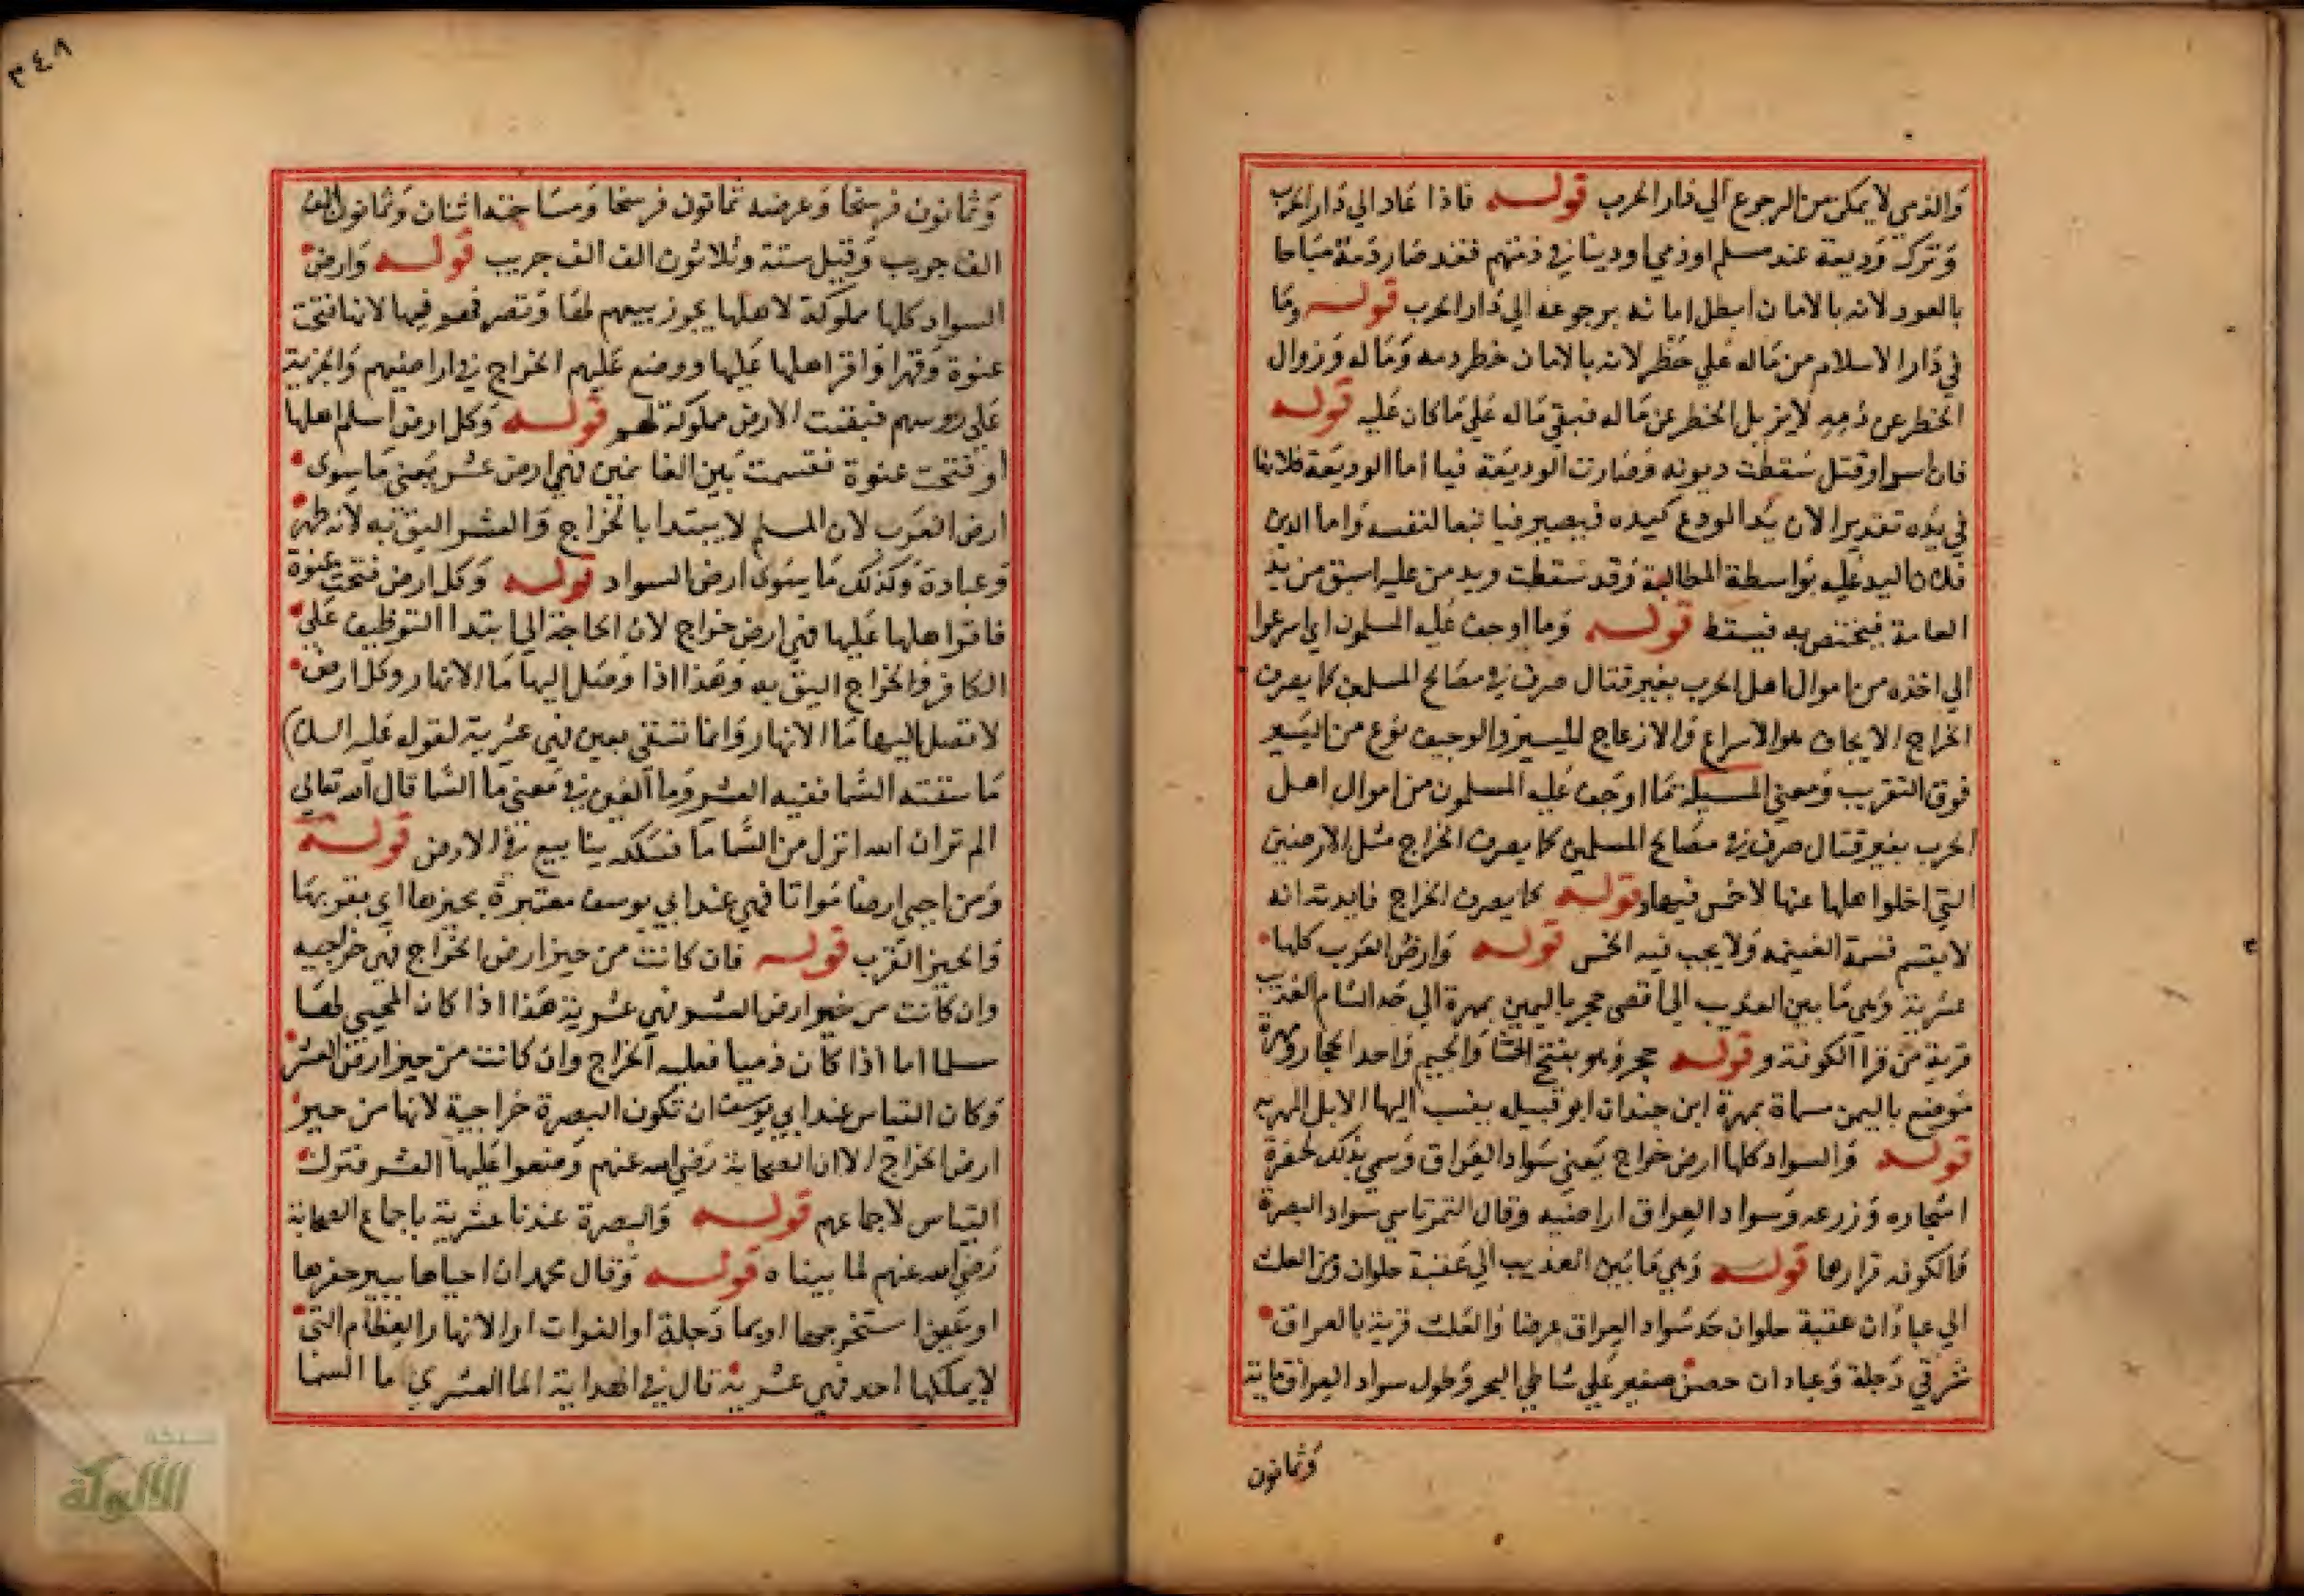 والذمي لا يمكن من الرجوع الي دار الحرب قوله فاذا عاد الي دار الحرب
وترك وديعة عند مسلم او ذمي او دينا في ذمتهم فقد صار دمه مباحا
بالعود لانه بالامان ابطل امانه برجوعه الي دار الحرب قوله وما
في دار الاسلام من ماله علي خطر لانه بالامان خطر دمه وماله وزوال
الخطر عن دمه لا يزيل الخطر عن ماله فبقي ماله علي ما كان عليه قوله
فان اسر او قتل سقطت ديونه وصارت الوديعة فيا اما الوديعة فلانها
في يده تقديرا لان يد المودع كيده فيصير فيا تبعا لنفسه واما الدين
فلان اليد عليه بواسطة المطالبة وقد سقطت ويد من عليه اسبق من يد
العامة فيختص به فيسقط قوله وما اوجف عليه المسلمون اي اسرعوا
الي اخذه من اموال اهل الحرب بغير قتال صرف في مصالح المسلمين كما يصرف
الخراج الايجاف هو الاسراع والازعاج للسير والوجيف نوع من السير
فوق التقريب ومعني المسيلة ما اوجف عليه المسلمون من اموال اهل
الحرب بغير قتال صرف في مصالح المسلمين كما يصرف الخراج مثل الارضين
التي اخلوا اهلها عنها لا خمس فيها وقوله كما يصرف الخراج فايدته انه
لا يقسم قسمة الغنيمه ولا يجب فيه الخمس قوله وارض العرب كلها
عشرية وهي ما بين العذيب الي اقصي حجر باليمن بمهرة الي حد الشام العذيب
قرية من قرا الكوفة وقوله حجر وهو بفتح الحا والجيم واحد الحجار ومهرة
موضع باليمن مسماة بمهرة ابن حيدان ابو قبيله ينسب اليها الابل المهريه
قوله والسواد كلها ارض خراج يعني سواد العراق وسمي بذلك لخضرة
اشجاره وزرعه وسواد العراق اراضيه وقال التمرتاسي سواد البصرة
فالكوفه قرارها قوله وهي ما بين العذيب الي عقبة حلوان ومن العلث
الي عبادان عقبة حلوان حد سواد العراق عرضا والعلث قرية بالعراق
شرقي دجلة وعبادان حصن صغير علي شاطي البحر وطول سواد العراق ماية
وثمانون
٣٤٨
وثمانون فرسخا وعرضه ثمانون فرسخا ومساحته اثنان وثمانون الف
الف جريب وقيل ستة وثلاثون الف الف جريب قوله وارض
السواد كلها مملوكة لاهلها يجوز بيعهم لها وتصرفهم فيها لانها فتحت
عنوة وقهرا واقر اهلها عليها ووضع عليهم الخراج في اراضيهم والجزية
علي روسهم فبقيت الارض مملوكة لهم قوله وكل ارض اسلم اهلها
او فتحت عنوة فقسمت بين الغانمين فهي ارض عشر يعني ما سوي
ارض العرب لان المسلم لا يبتدا بالخراج والعشر اليق به لانه طهرة
وعبادة وكذلك ما سوي ارض السواد قوله وكل ارض فتحت عنوة
فاقر اهلها عليها فهي ارض خراج لان الحاجة الي ابتدا التوظيف علي
الكافر والخراج اليق به وهذا اذا وصل اليها ما الانهار وكل ارض
لا تصل اليها ما الانهار وانما تسقي بعين فهي عشرية لقوله عليه السلا)
ما سقته السما ففيه العشر وما العين في معني ما السما قال الله تعالي
الم تر ان الله انزل من السما ما فسلكه ينابيع في الارض قوله
ومن احيي ارضا مواتا فهي عند ابي يوسف معتبرة بحيزها اي بقربها
والحيز القرب قوله فان كانت من حيز ارض الخراج فهي خراجيه
وان كانت من حيز ارض العشر فهي عشرية هذا اذا كان المحيي لها
مسلما اما اذا كان ذميا فعليه الخراج وان كانت من حيز ارض العشر
وكان القياس عند ابي يوسف ان تكون البصرة خراجية لانها من حيز
ارض الخراج الا ان الصحابة رضي الله عنهم وضعوا عليها العشر فترك
القياس لاجماعهم قوله والبصرة عندنا عشرية باجماع الصحابة
رضي الله عنهم لما بيناه قوله وقال محمد ان احياها ببير حفرها
او عين استخرجها او بما دجلة او الفرات او الانهار العظام التي
لا يملكها احد فهي عشرية قال في الهداية الما العشري ما السما
شبكة
الألوكة